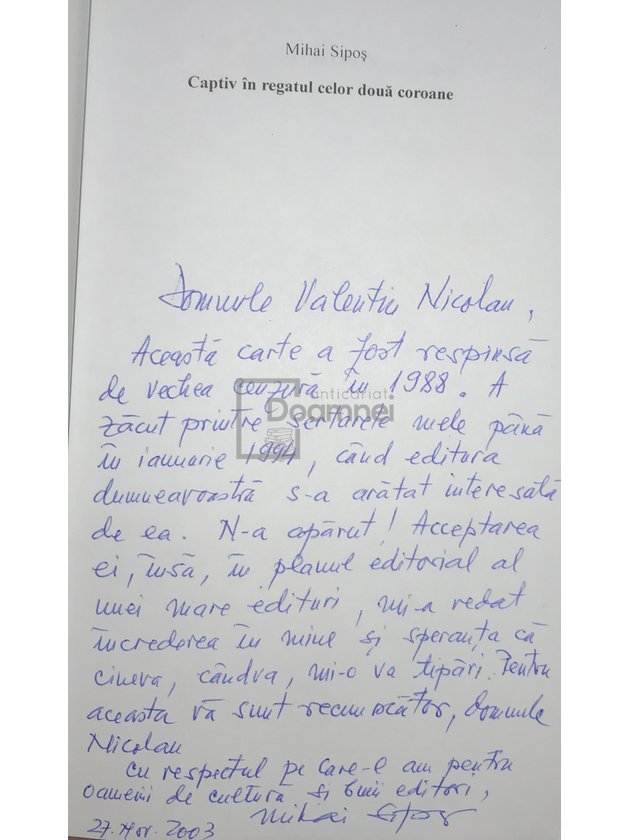 Mihai Sipoş
Captiv în regatul celor două coroane
Domnule Valentin Nicolau,
Această carte a fost respinsă
de vechea cenzură în 1988. A
anticariat
Doamnei
zăcut printre sertarele mele până
în ianuarie 1994, când editura
dumneavoastră s-a arătat interesată
de ea. N-a apărut! Acceptarea
ei, însă, în planul editorial al
unei mare edituri, mi-a redat
încrederea în mine şi speranţa că
cineva, cândva, mi-o va tipări. Pentru
aceasta vă sunt recunoscător, domnule
Nicolau
Cu respectul pe care-l am pentru
oameni de cultură şi buni editori,
Mihai Sipoş
27. Nov. 2003